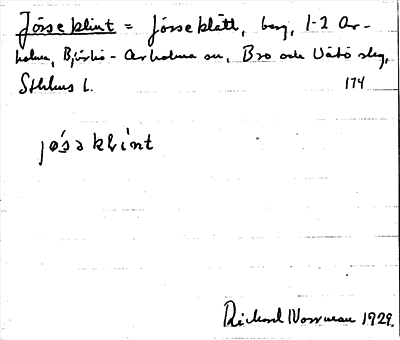 Jösseklint = Jösseklätt, berg, 1-2 Ar-
holma, Björkö-Arholma sn, Bro och Vätö slg,
Sthlms l. 174
jøsəklint
Rickard Norrman 1929.